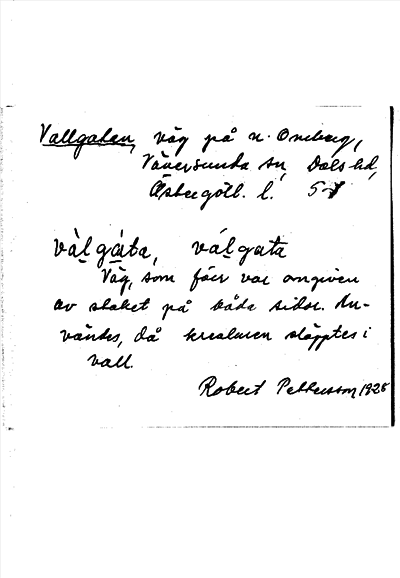 Vallgatan, väg på n. Omberg,
Väversunda sn, Dals hd,
Östergötl. l. 5
vàl̲gàta, vál̲gata
Väg, som förr var omgiven
av staket på båda sidor. An-
vändes, då kreaturen släpptes i
vall.
Robert Pettersson, 1928